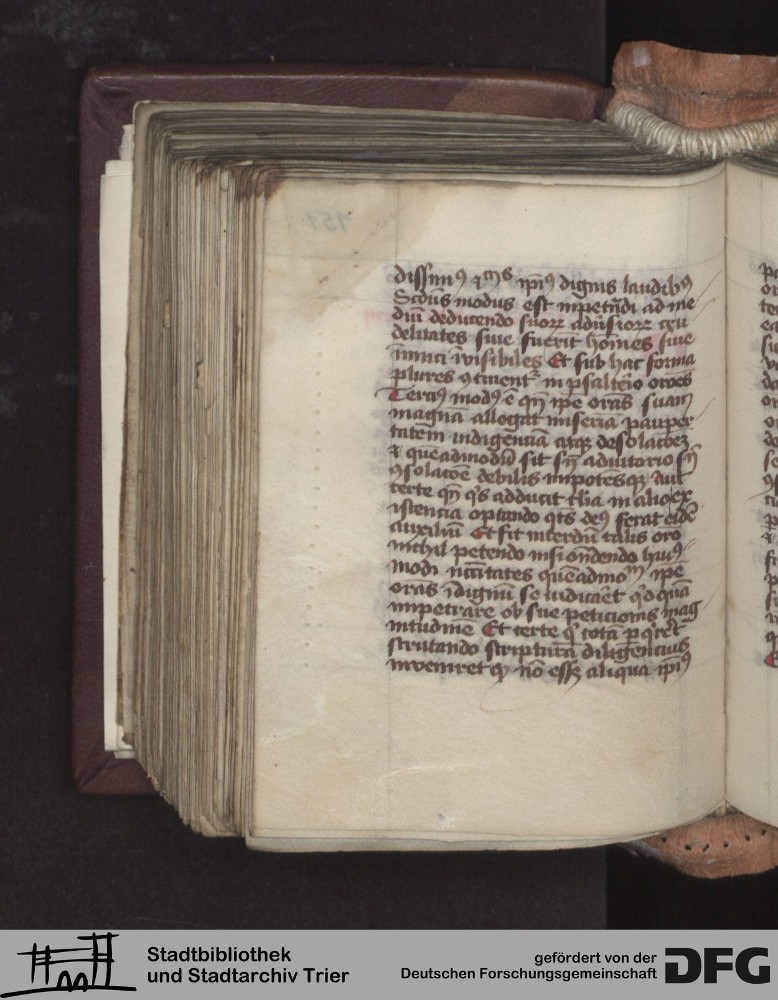 dissimꝰ ⁊ ipīꝰ dignis laudibꝰ
Scd̄us modus est impetrādi ad me
diū deducendo suoꝝ adūsioꝝ cru
delitates siue fuerīt hoīnes siue
īimici īvisibiles Et sub hac forma
plures ꝯtinentᷣ in psalterio oroēs
Terciꝰ modꝰ ē qn̄ ip̄e orās suam
magnā allegat miseriā pauper
tatem indigenciā atqꝫ desolacōeꝫ
⁊ quēadmodū sit sn̄ adiutorio sn̄
ꝯsolacōe debilis impotēsqꝫ Aut
certe qn̄ qͥs adducit illa in alio ex
istencia optando qtꝰ deꝰ ferat eidē
auxiliū Et sit interdū talis orō
nichil petendo nisi on̄dendo huiꝰ
modi nccītates quēadmoᵐ ip̄e
orās īdignū se iudicaēt qͦdqͣ
impetrare ob sue peticionis mag
nitudinē Et certe qͥ totā ꝑqͥreret
scruptando scripturā diligencius
inveniret qꝫ nō esset aliqua ipīꝰ
Stadtbibliothek
und Stadtarchiv Trier
gefördert von der
Deutschen Forschungsgemeinschaft
DFG